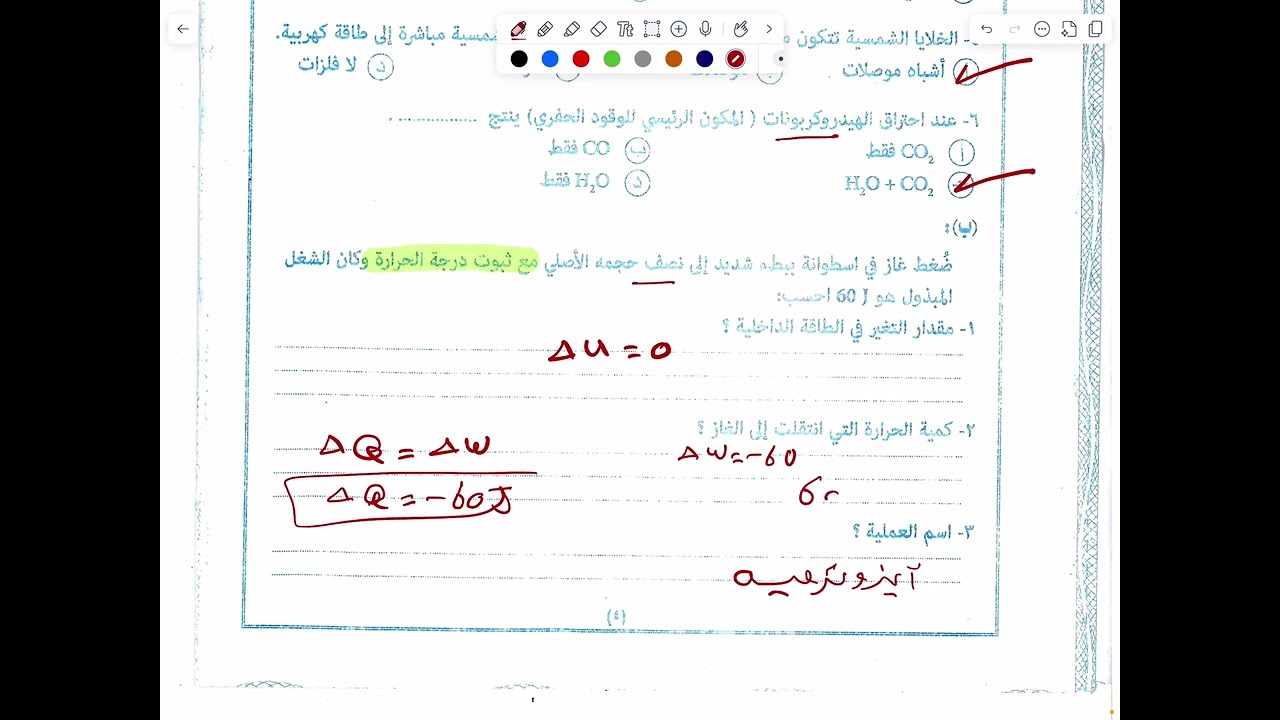 الخلايا الشمسية تتكون
شمسية مباشرة إلى طاقة كهربية.
أ أشباه موصلات
د لا فلزات
٦- عند احتراق الهيدروكربونات ( المكون الرئيسي للوقود الحفري) ينتج ................ .
أ CO₂ فقط
ب CO فقط
H₂O + CO₂
د H₂O فقط
(ب):
ضُغط غاز في اسطوانة ببطء شديد إلى نصف حجمه الأصلي مع ثبوت درجة الحرارة وكان الشغل
المبذول هو 60 J احسب:
١- مقدار التغير في الطاقة الداخلية ؟
Δu = 0
٢- كمية الحرارة التي انتقلت إلى الغاز ؟
ΔQ = Δw
Δw = -60
ΔQ = -60J
٣- اسم العملية ؟
آيزوثرمية
(٤)